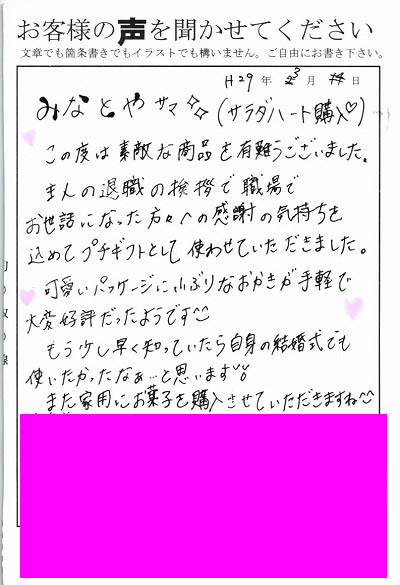 お客様の声を聞かせてください
文章でも箇条書きでもイラストでも構いません。ご自由にお書き下さい。
H29年 3月 日
みなとやサマ (サラダハート購入♡)
この度は素敵な商品を有難うございました。
主人の退職の挨拶で職場で
お世話になった方々への感謝の気持ちを
込めてプチギフトとして使わせていただきました。
可愛いパッケージに小ぶりなおかきが手軽で
大変好評だったようです
もう少し早く知っていたら自身の結婚式でも
使いたかったなぁ…と思います
また家用にお菓子を購入させていただきますね